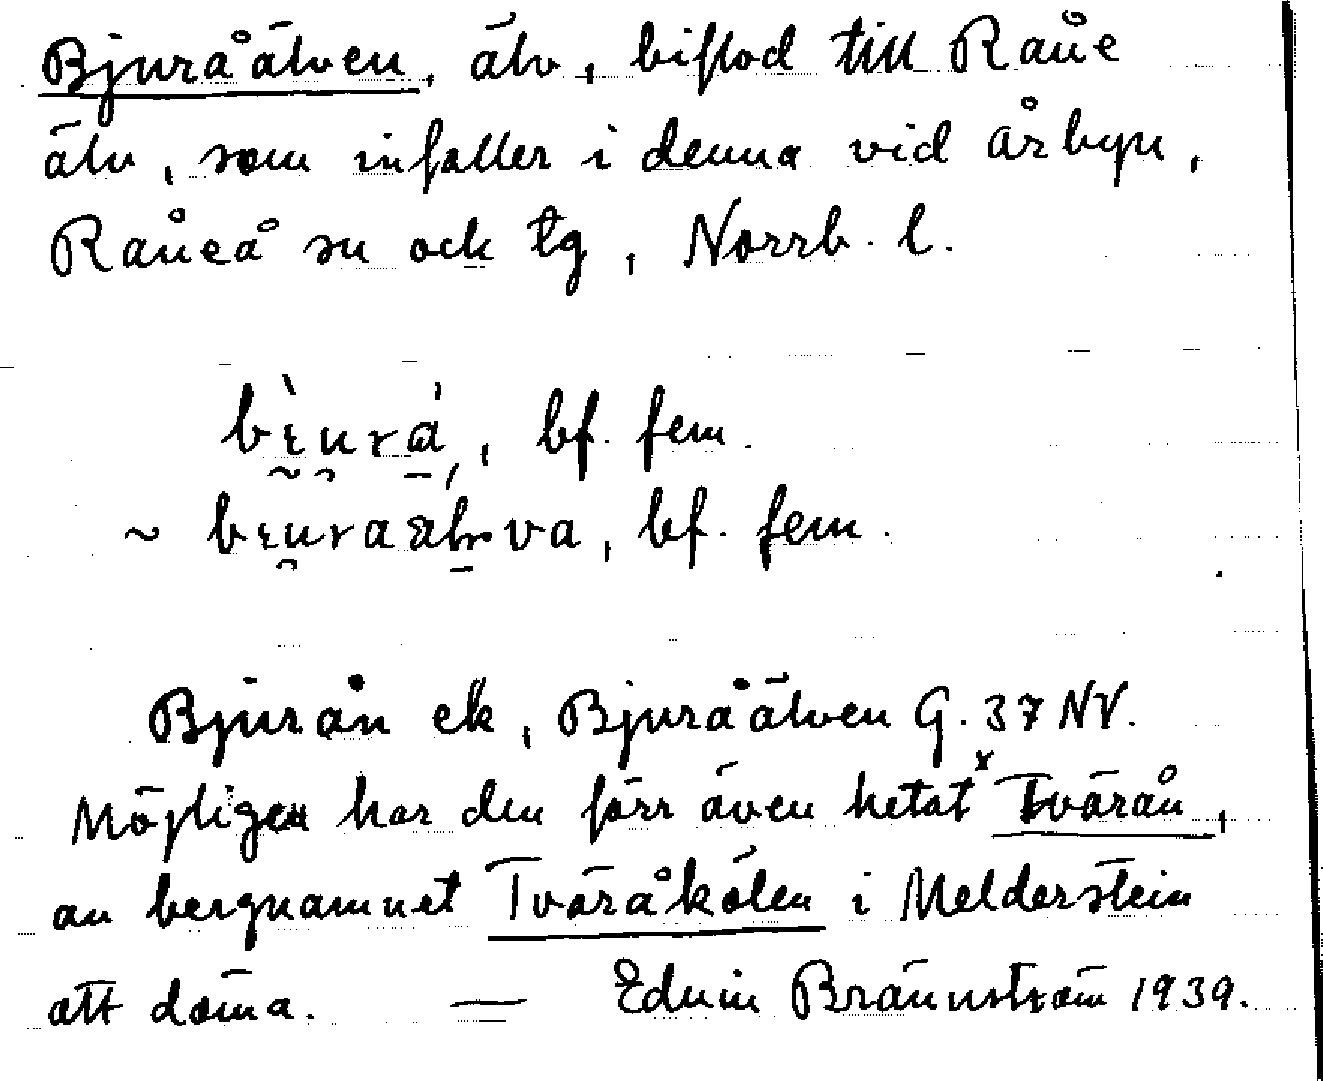 Bjuråälven, älv, biflod till Råne
älv, som infaller i denna vid Årbyn,
Råneå sn ock tg, Norrb. l.
bf. fem.
~ bf. fem.
Bjurån ek, Bjuråälven G. 37 NV.
Möjligen har den förr även hetat ˣTvärån,
av bergnamnet Tväråkölen i Melderstein
att döma. — Edvin Brännström 1939.